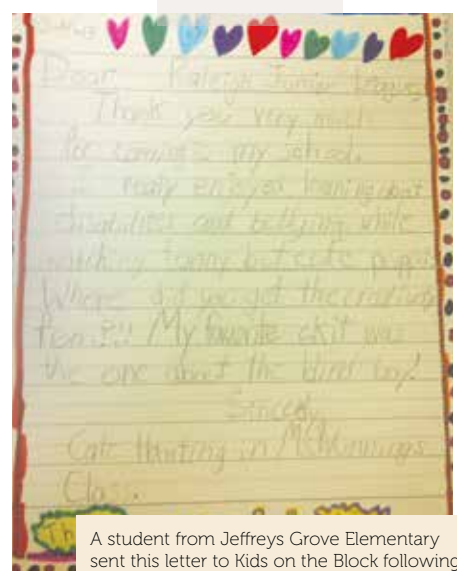 Dear Raleigh Junior League,
Thank you very much
for coming to my school.
I really enjoyed learning about
disabilities and bullying while
watching funny but cute
Where did you get the creativity
from?!! My favorite skit was
the one about the blind boy!
Sincerly,
in
Class.
Th
A student from Jeffreys Grove Elementary
sent this letter to Kids on the Block following